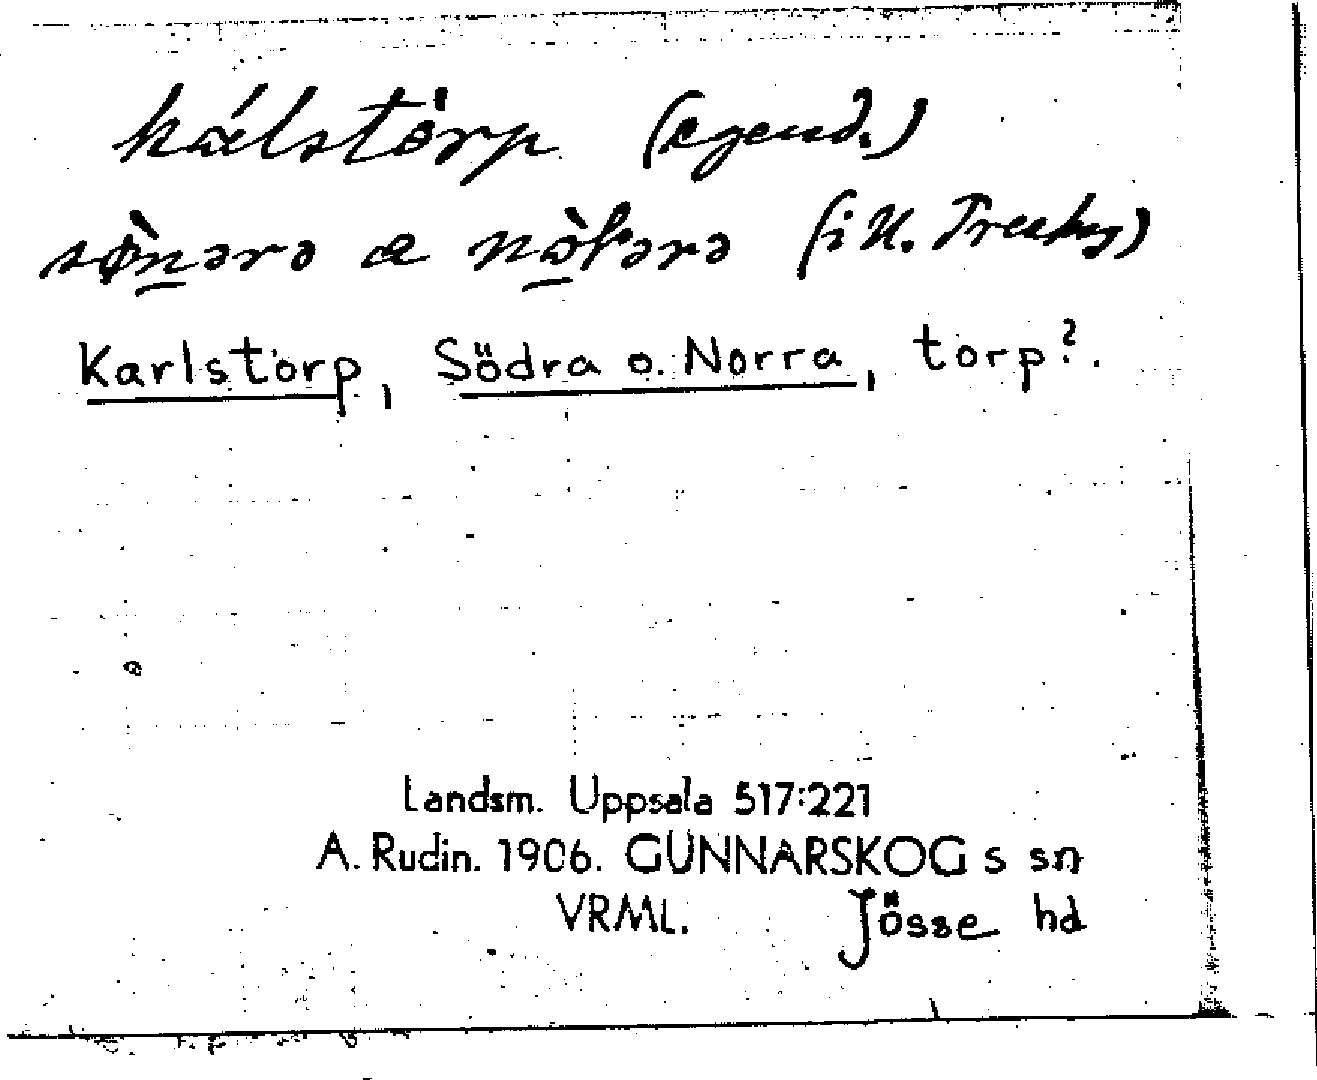 kálstòrp (egend.)
sø̀nərə æ nòrərə (i N. Treskog)
Karlstorp, Södra o. Norra, torp?.
Landsm. Uppsala 517:221
A. Rudin. 1906. GUNNARSKOG s sn
VRML. Jösse hd